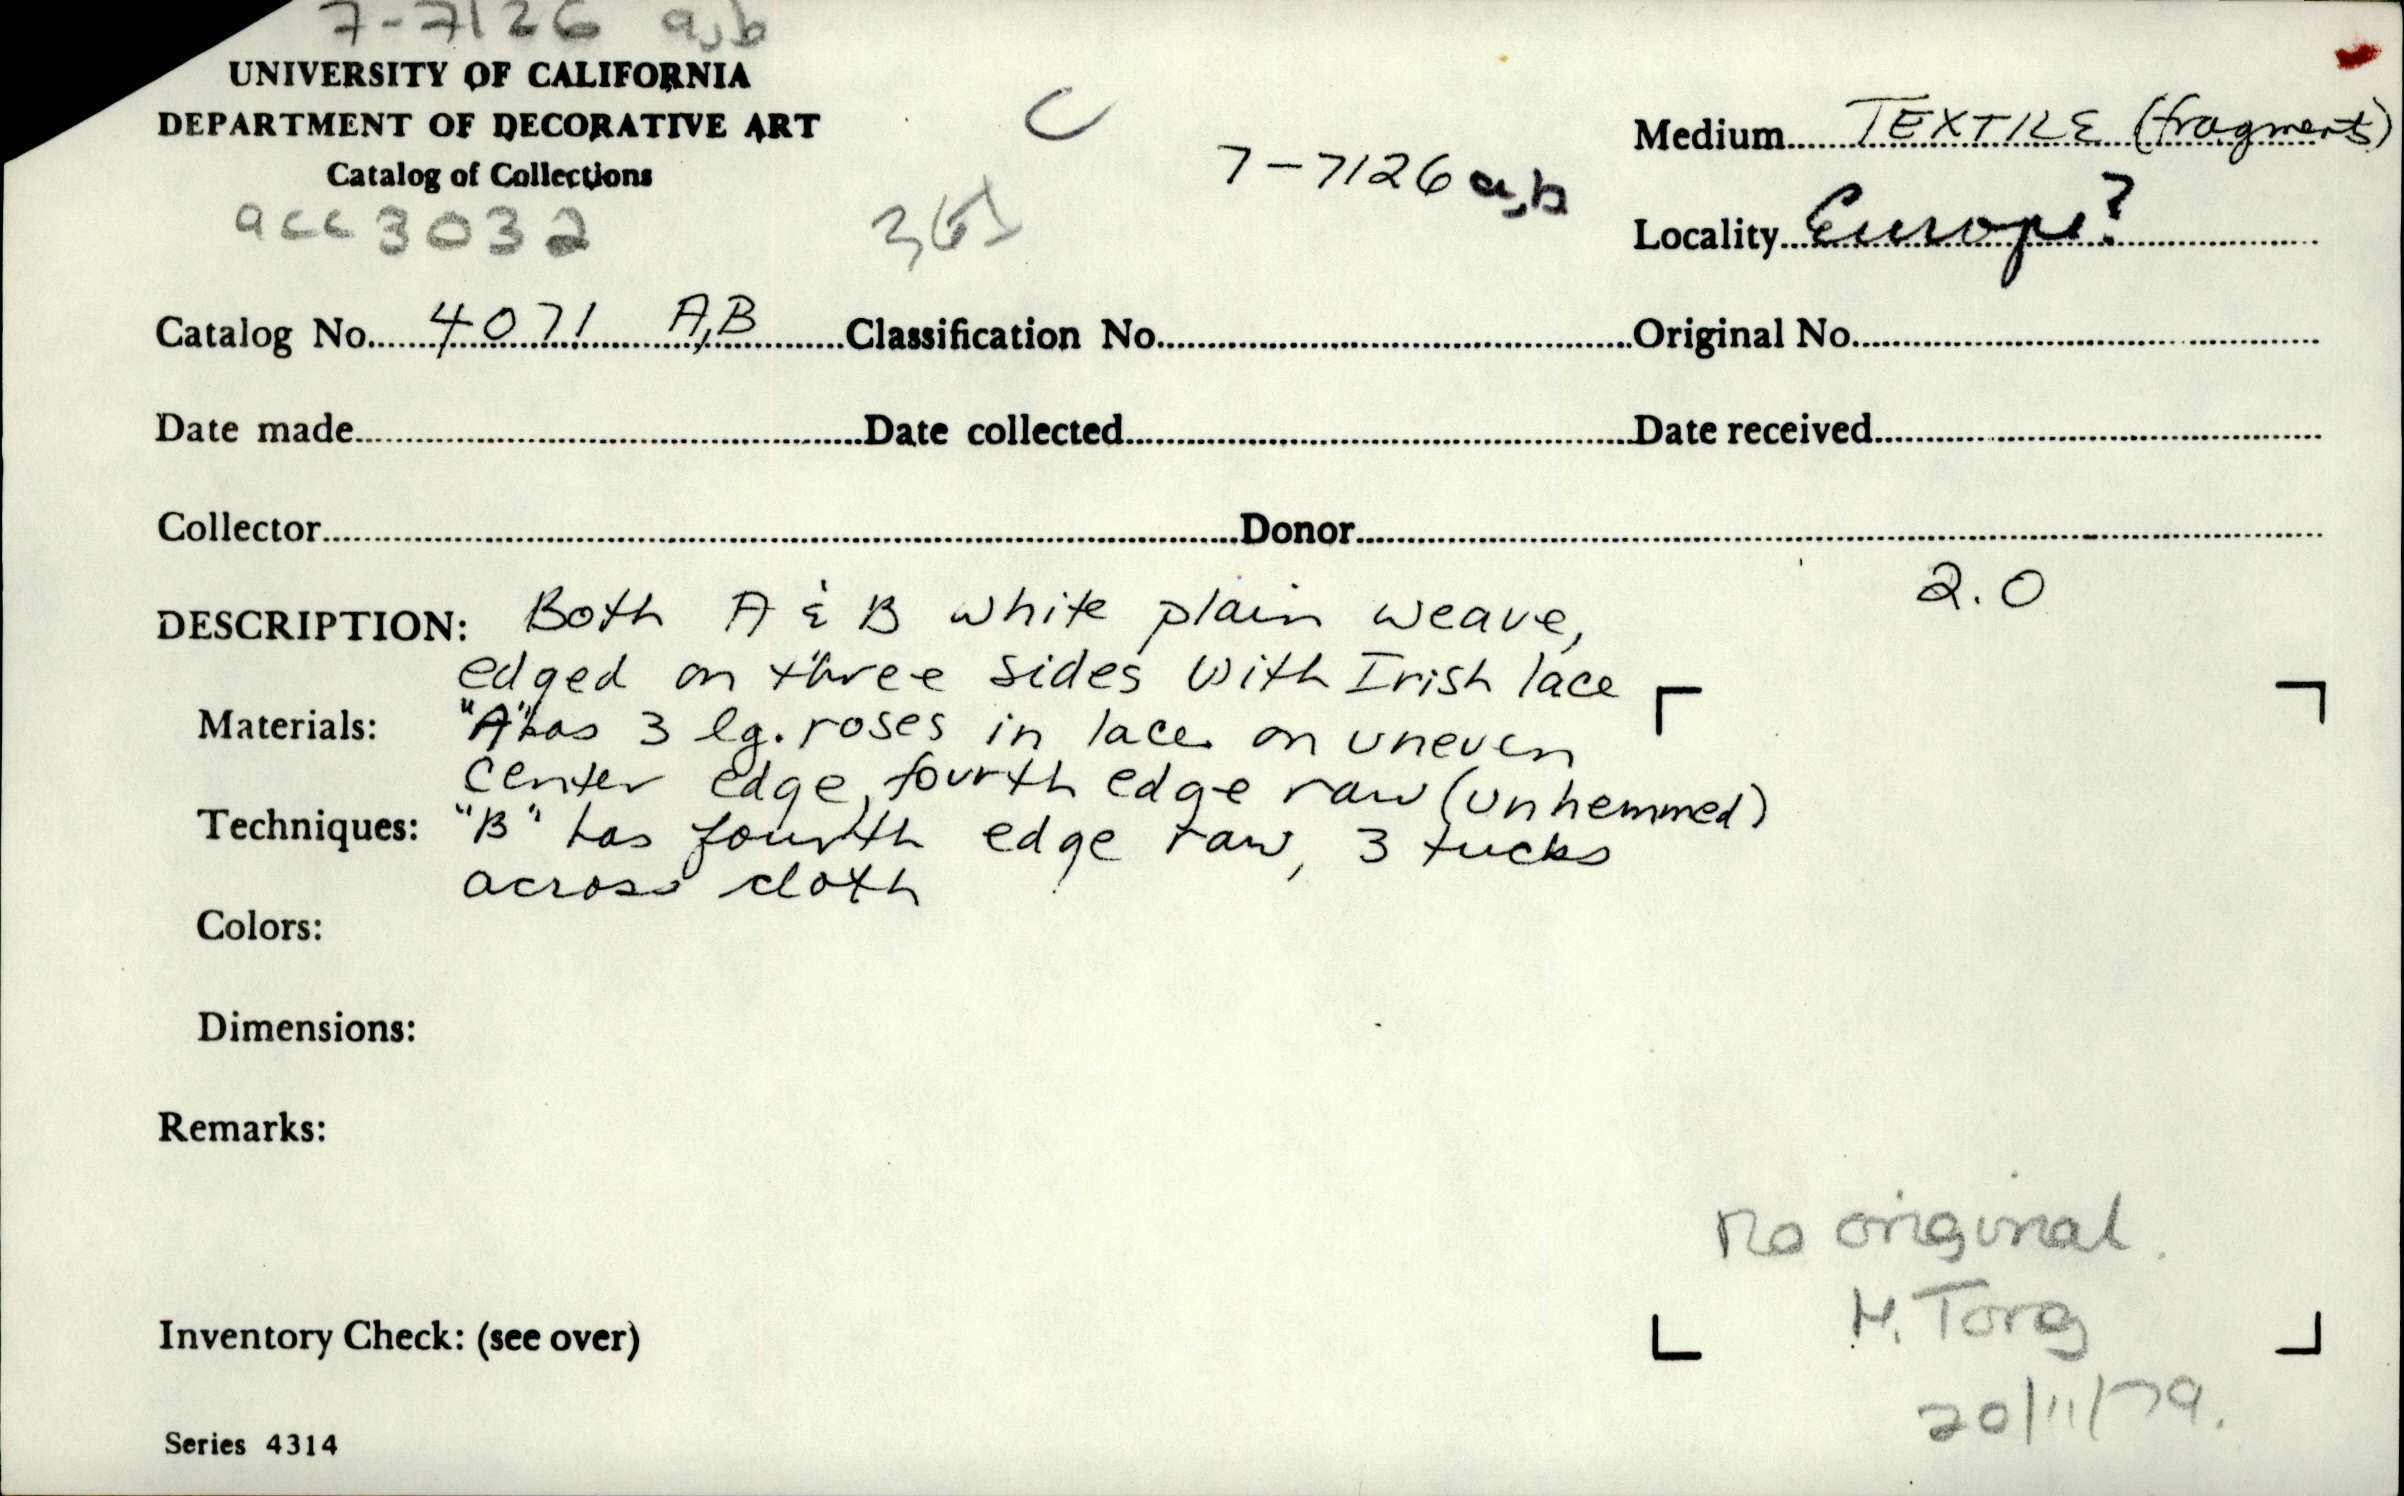 7-7126 a,b
UNIVERSITY OF CALIFORNIA
DEPARTMENT OF DECORATIVE ART
Catalog of Collections
acc 3032
C
7-7126 a,b
Medium TEXTILE (fragments)
Locality Europe?
Catalog No. 4071 A,B Classification No. Original No.
Date made Date collected Date received
Collector Donor
2.0
DESCRIPTION: Both A & B white plain weave,
edged on three sides with Irish lace
Materials: "A" has 3 lg. roses in lace on uneven
center edge, fourth edge raw (unhemmed)
Techniques: "B" has fourth edge raw, 3 tucks
across cloth
Colors:
Dimensions:
Remarks:
no original.
Inventory Check: (see over)
20/11/79.
Series 4314